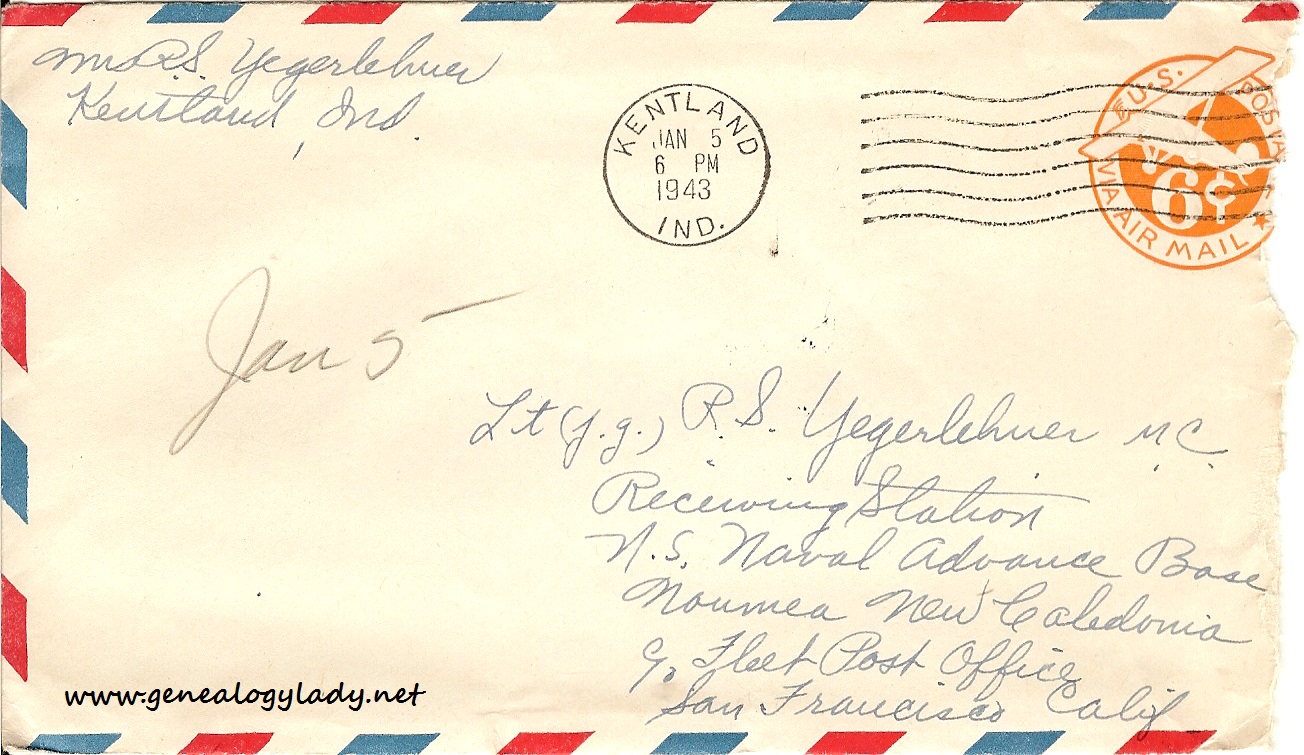 Mrs R.S. Yegerlehner
Kentland, Ind.
KENTLAND
JAN 5
6 PM
1943
IND.
U.S. POSTAGE
6¢
VIA AIR MAIL
Jan 5
Lt (j.g.) R.S. Yegerlehner M.C.
Receiving Station
U.S. Naval Advance Base
Noumea New Caledonia
c/o Fleet Post Office
San Francisco Calif
www.genealogylady.net